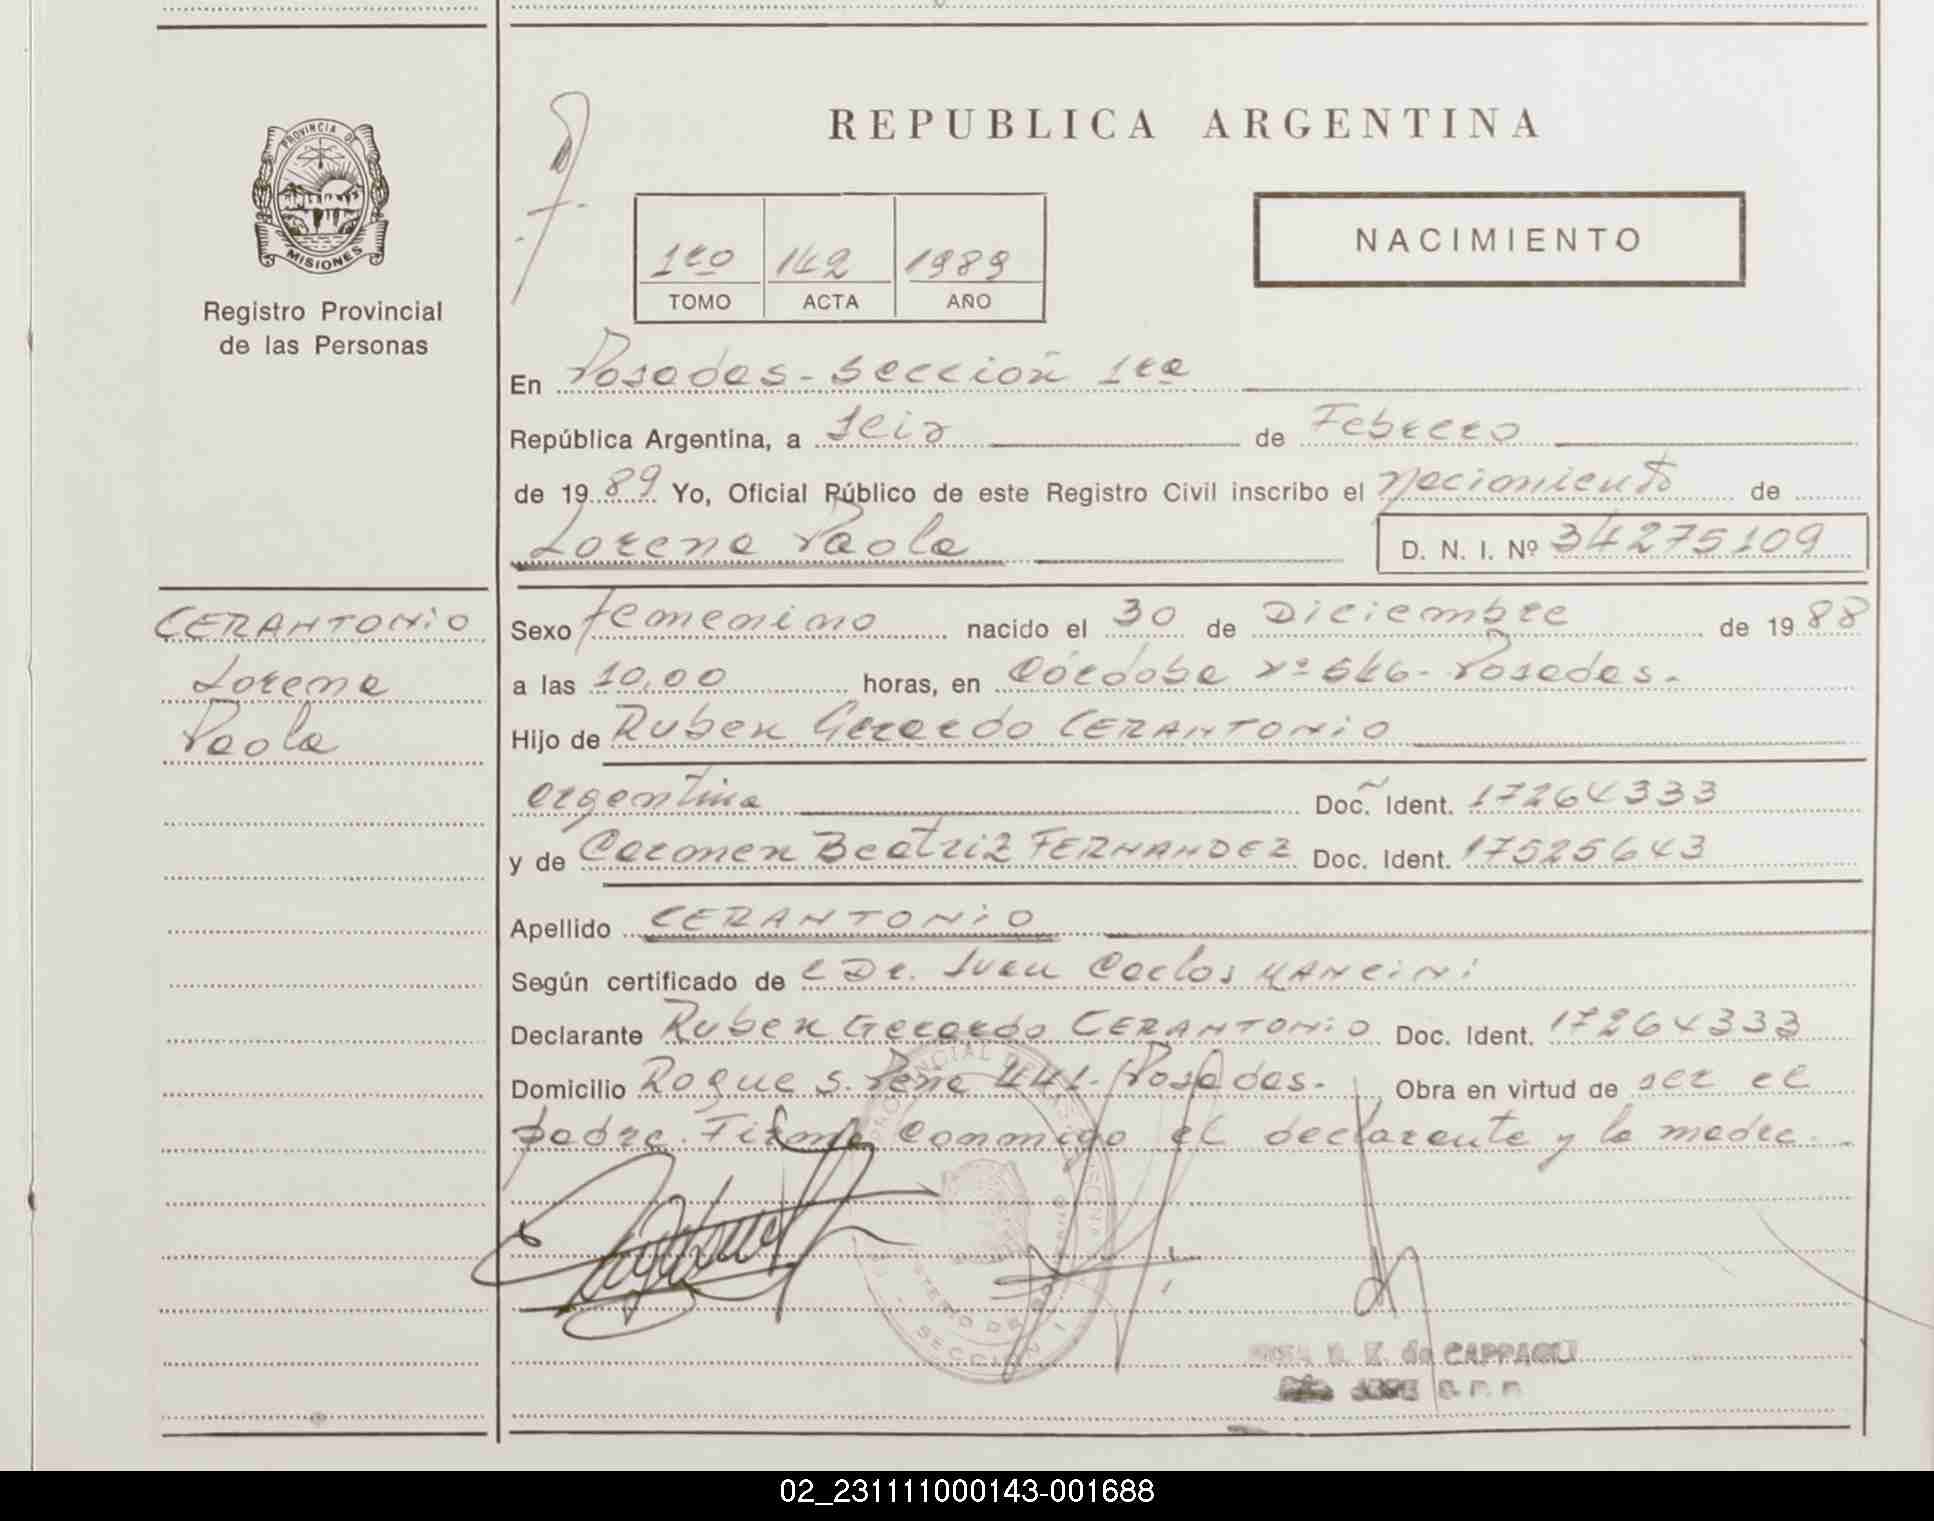 PROVINCIA DE
MISIONES
Registro Provincial
de las Personas
REPUBLICA ARGENTINA
NACIMIENTO
1ro 142 1989
TOMO ACTA AÑO
En Posadas - Sección 1ra
República Argentina, a Seis de Febrero
de 1989 Yo, Oficial Público de este Registro Civil inscribo el nacimiento de
Lorena Paola D. N. I. Nº 34275109
CERANTONIO
Lorena
Paola
Sexo femenino nacido el 30 de Diciembre de 1988
a las 10,00 horas, en Córdoba Nº - Posadas.-
Hijo de Ruben Gerardo CERANTONIO
argentina Doc. Ident. 17264333
y de Carmen Beatriz FERNANDEZ Doc. Ident. 17525643
Apellido CERANTONIO
Según certificado de Dr. Juan Carlos MANCINI
Declarante Ruben Gerardo CERANTONIO Doc. Ident. 17264333
Domicilio Roque S. Peña 441 - Posadas.- Obra en virtud de ser el
padre. Firma conmigo el declarante y la madre.-
SECCION 1
de CAPPAGLI
JEFE
02_231111000143-001688